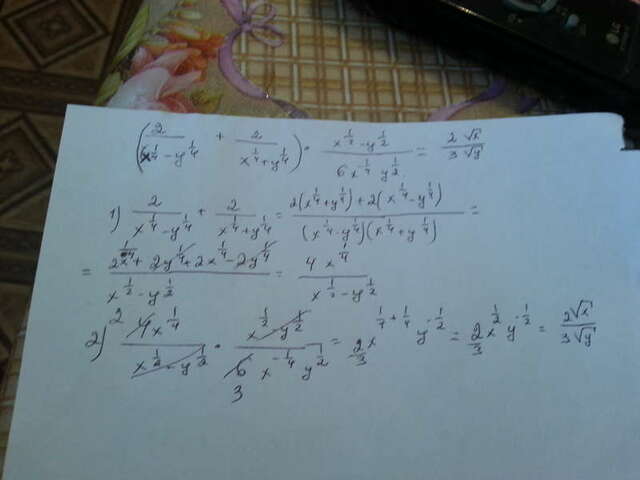 (2/(x^{1/4} - y^{1/4}) + 2/(x^{1/4} + y^{1/4})) · (x^{1/2} - y^{1/2})/(6x^{-1/4} y^{1/2}) = 2√x/3√y
1) 2/(x^{1/4} - y^{1/4}) + 2/(x^{1/4} + y^{1/4}) = (2(x^{1/4} + y^{1/4}) + 2(x^{1/4} - y^{1/4}))/((x^{1/4} - y^{1/4})(x^{1/4} + y^{1/4})) =
= (2x^{1/4} + 2y^{1/4} + 2x^{1/4} - 2y^{1/4})/(x^{1/2} - y^{1/2}) = 4x^{1/4}/(x^{1/2} - y^{1/2})
2) 2 4x^{1/4}/(x^{1/2} - y^{1/2}) · (x^{1/2} - y^{1/2})/(6 3 x^{-1/4} y^{1/2}) = 2/3 x^{1/4 + 1/4} y^{-1/2} = 2/3 x^{1/2} y^{-1/2} = 2√x/3√y